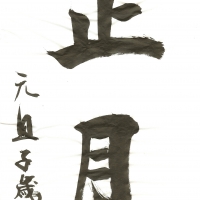 正月
元旦子歳